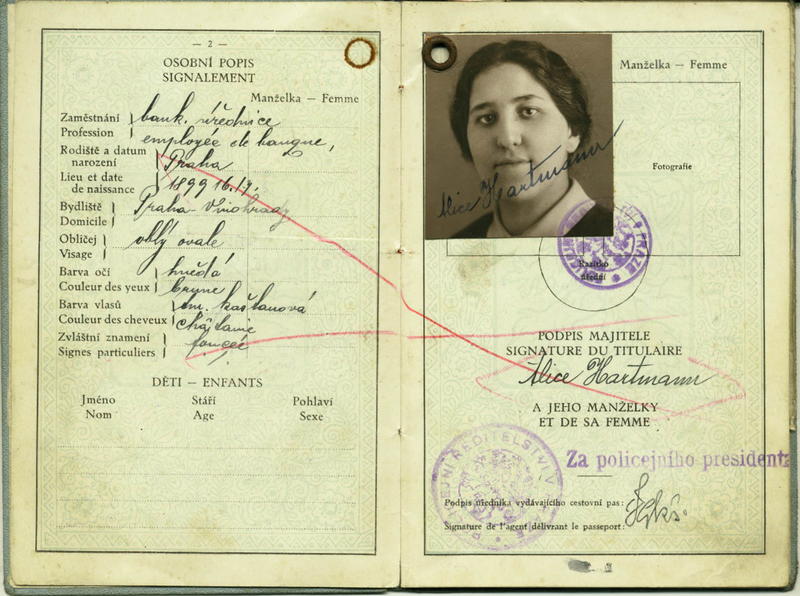 — 2 —
OSOBNÍ POPIS
SIGNALEMENT
Manželka — Femme
Zaměstnání
Profession
bank. úřednice
employée de banque,
Rodiště a datum
narození
Lieu et date
de naissance
Praha
1899 16./9.
Bydliště
Domicile
Praha-Vinohrady
Obličej
Visage
oblý ovale
Barva očí
Couleur des yeux
hnědá
brune
Barva vlasů
Couleur des cheveux
tm. kaštanová
châtaine
foncée
Zvláštní znamení
Signes particuliers
DĚTI — ENFANTS
Jméno Stáří Pohlaví
Nom Age Sexe
Manželka — Femme
Alice Hartmann
Fotografie
Razítko
úřední
PODPIS MAJITELE
SIGNATURE DU TITULAIRE
Alice Hartmann
A JEHO MANŽELKY
ET DE SA FEMME
POLICEJNÍ ŘEDITELSTVÍ V PRAZE
Za policejního presidenta
Podpis úředníka vydávajícího cestovní pas:
Signature de l'agent délivrant le passeport: